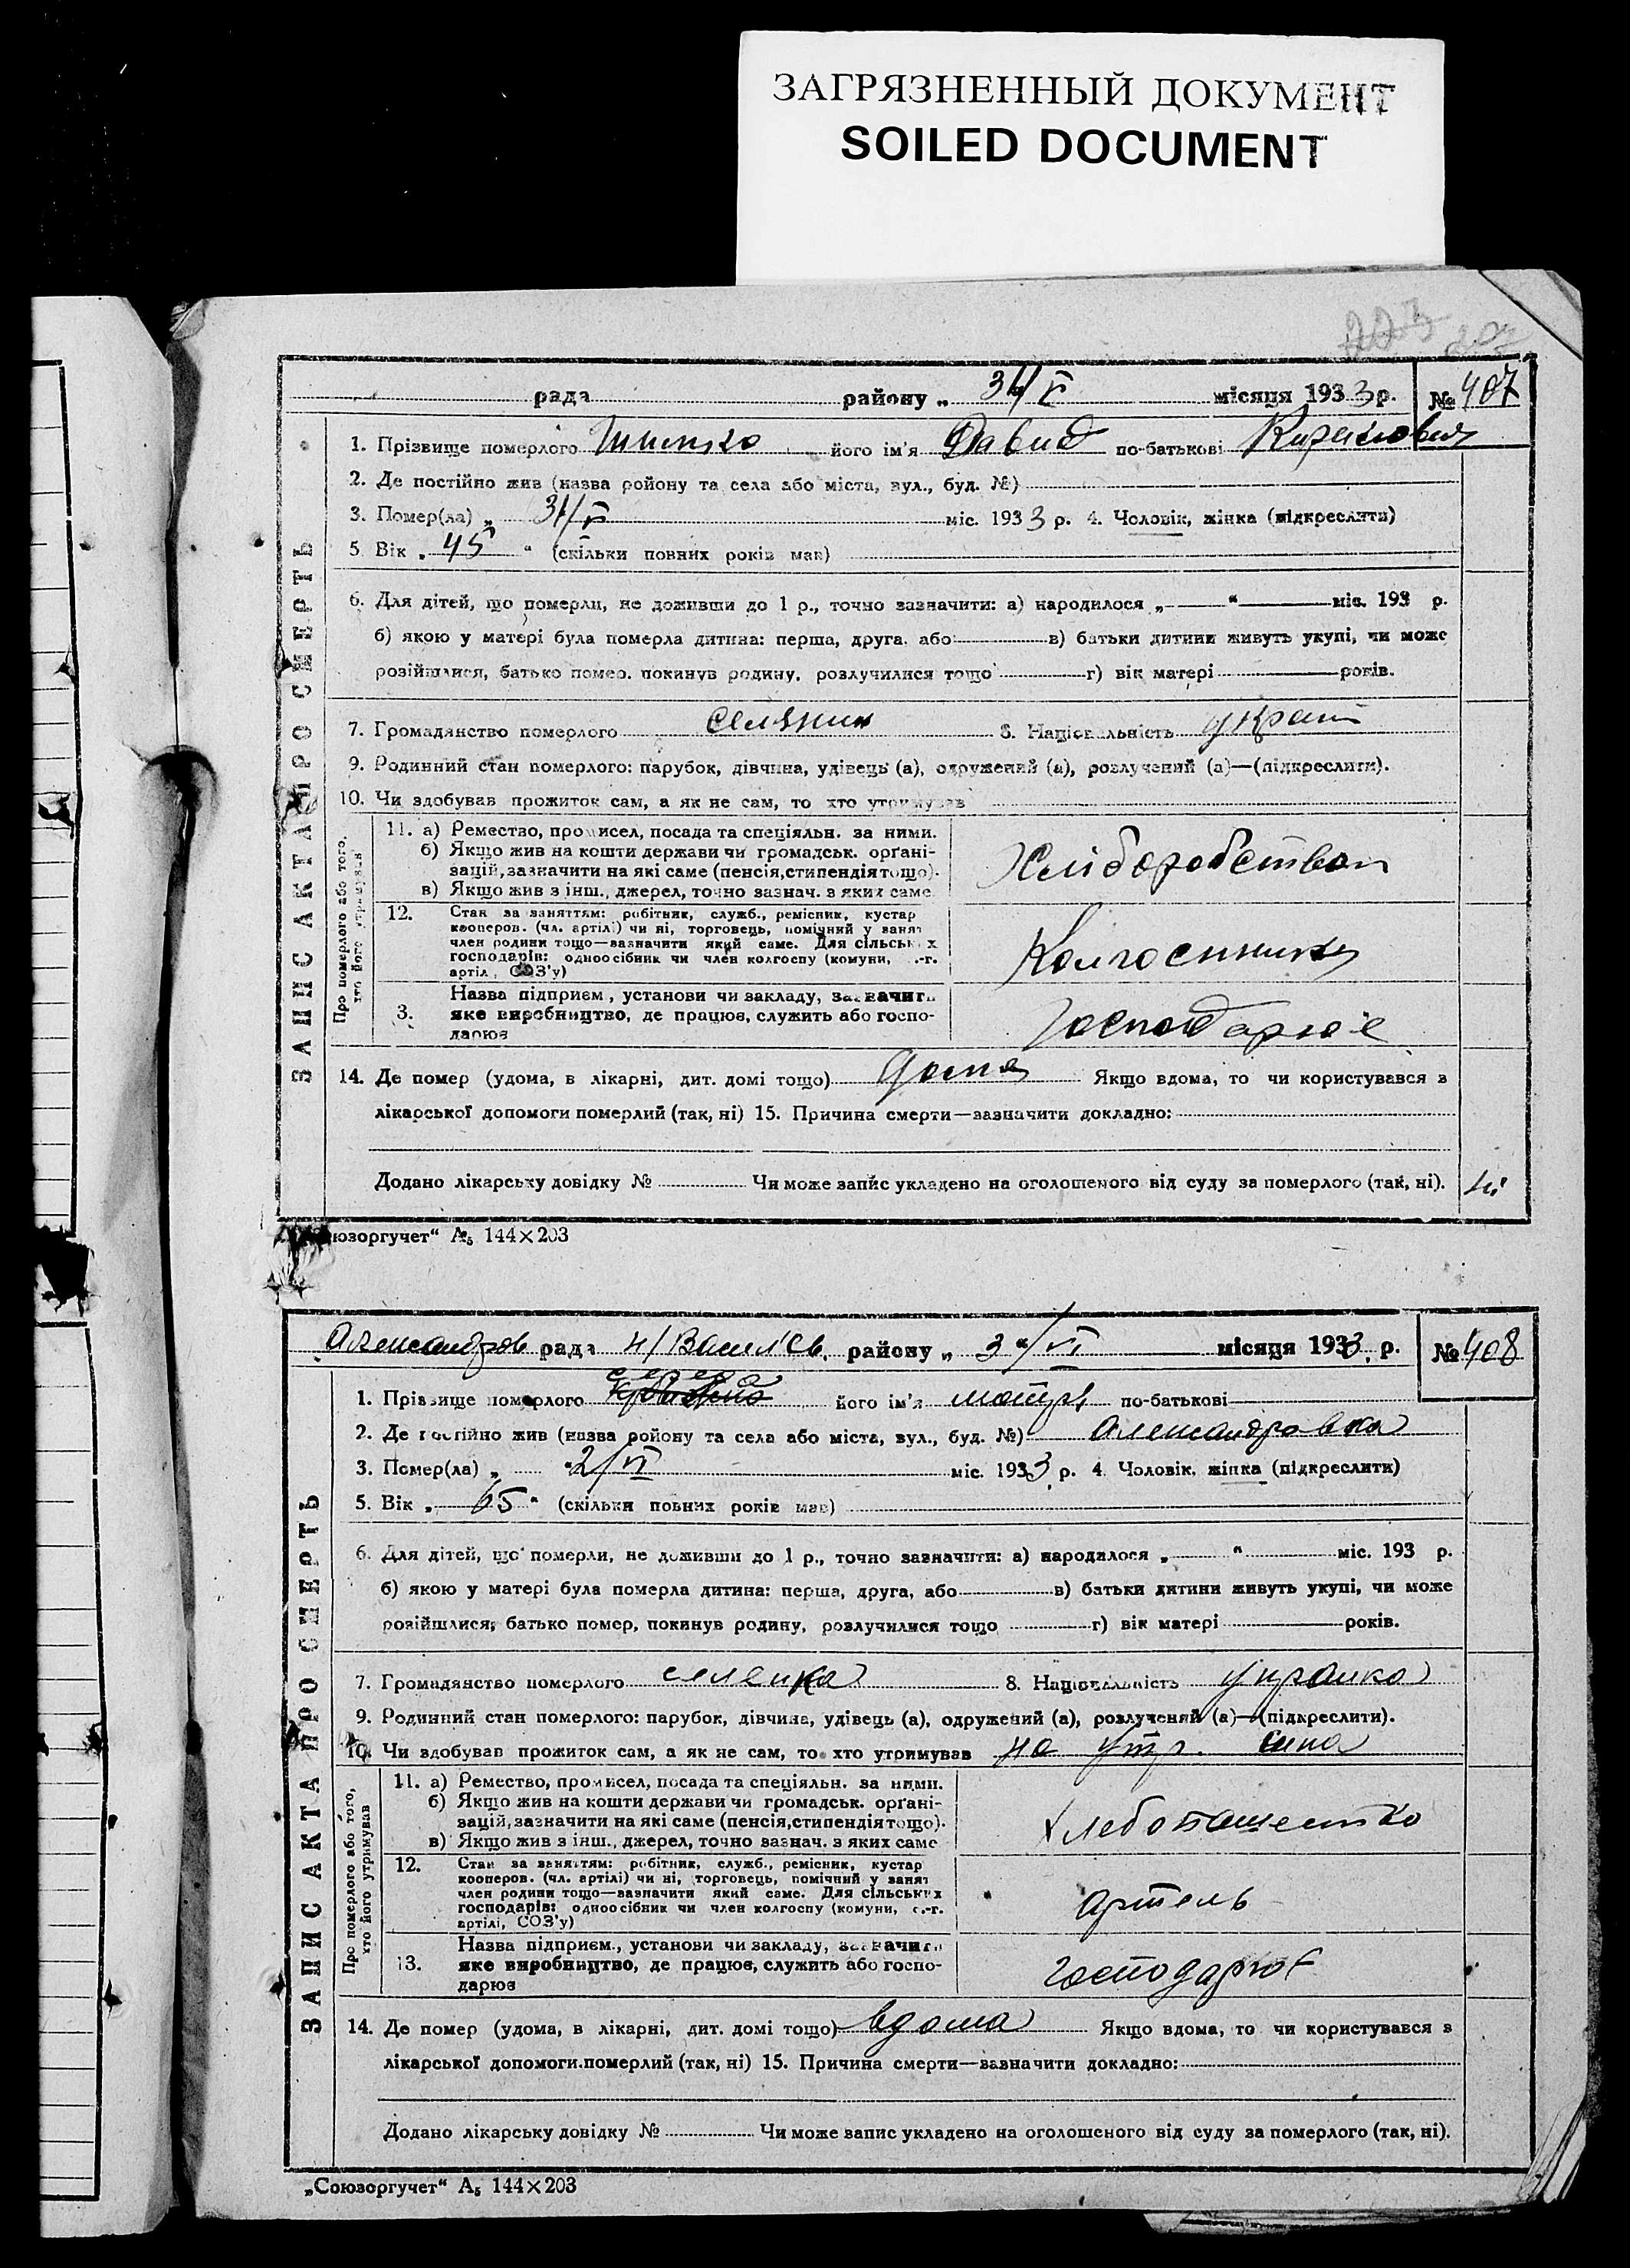 ЗАГРЯЗНЕННЫЙ ДОКУМЕНТ
SOILED DOCUMENT
рада району „ 31/V місяця 1933 р. № 407
ЗАПИС АКТА ПРО СМЕРТЬ
1. Прізвище померлого його ім'я Давид по-батькові
2. Де постійно жив (назва ройону та села або міста, вул., буд. №)
3. Помер(ла) „ 31/V міс. 1933 р. 4. Чоловік, жінка (підкреслити)
5. Вік „ 45 “ (скільки повних років мав)
6. Для дітей, що померли, не доживши до 1 р., точно зазначити: а) народилося „ “ міс. 193 р.
б) якою у матері була померла дитина: перша, друга, або в) батьки дитини живуть укупі, чи може
розійшлися, батько помер, покинув родину, розлучилися тощо г) вік матері років.
7. Громадянство померлого селянин 8. Національність
9. Родинний стан померлого: парубок, дівчина, удівець (а), одружений (а), розлучений (а)—(підкреслити).
10. Чи здобував прожиток сам, а як не сам, то хто утримував
Про померлого або того,
хто його утримував
11. а) Ремество, промисел, посада та спеціяльн. за ними.
б) Якщо жив на кошти держави чи громадськ. орґані-
зацій, зазначити на які саме (пенсія, стипендія тощо).
в) Якщо жив з інш., джерел, точно зазнач. з яких саме
Хліборобством
12. Стан за заняттям: робітник, служб., ремісник, кустар
кооперов. (чл. артілі) чи ні, торговець, помічний у занят
член родини тощо—зазначити який саме. Для сільських
господарів: одноосібник чи член колгоспу (комуни, с.-г.
артілі, СОЗ'у)
Колгоспник
3. Назва підприєм., установи чи закладу, зазначити
яке виробництво, де працює, служить або госпо-
дарює
Господарює
14. Де помер (удома, в лікарні, дит. домі тощо) Якщо вдома, то чи користувався з
лікарської допомоги померлий (так, ні) 15. Причина смерти—зазначити докладно:
Додано лікарську довідку № Чи може запис укладено на оголошеного від суду за померлого (так, ні). ні
юзоргучет“ А₅ 144×203
Александров рада н/Васил'єв. району „ 3“/VI місяця 1933 р. № 408
ЗАПИС АКТА ПРО СМЕРТЬ
1. Прізвище померлого його ім'я по-батькові
2. Де постійно жив (назва ройону та села або міста, вул., буд. №) Александровка
3. Помер(ла) „ “ 2/VI міс. 1933 р. 4. Чоловік, жінка (підкреслити)
5. Вік „ 65 “ (скільки повних років мав)
6. Для дітей, що померли, не доживши до 1 р., точно зазначити: а) народилося „ “ міс. 193 р.
б) якою у матері була померла дитина: перша, друга, або в) батьки дитини живуть укупі, чи може
розійшлися, батько помер, покинув родину, розлучилися тощо г) вік матері років.
7. Громадянство померлого селенка 8. Національність
9. Родинний стан померлого: парубок, дівчина, удівець (а), одружений (а), розлучений (а)—(підкреслити).
10. Чи здобував прожиток сам, а як не сам, то хто утримував на утр. сина
Про померлого або того,
хто його утримував
11. а) Ремество, промисел, посада та спеціяльн. за ними.
б) Якщо жив на кошти держави чи громадськ. орґані-
зацій, зазначити на які саме (пенсія, стипендія тощо).
в) Якщо жив з інш., джерел, точно зазнач. з яких саме
12. Стан за заняттям: робітник, служб., ремісник, кустар
кооперов. (чл. артілі) чи ні, торговець, помічний у занят
член родини тощо—зазначити який саме. Для сільських
господарів: одноосібник чи член колгоспу (комуни, с.-г.
артілі, СОЗ'у)
артель
13. Назва підприєм., установи чи закладу, зазначити
яке виробництво, де працює, служить або госпо-
дарює
господарює
14. Де помер (удома, в лікарні, дит. домі тощо) вдома Якщо вдома, то чи користувався з
лікарської допомоги померлий (так, ні) 15. Причина смерти—зазначити докладно:
Додано лікарську довідку № Чи може запис укладено на оголошеного від суду за померлого (так, ні).
„Союзоргучет“ А₅ 144×203